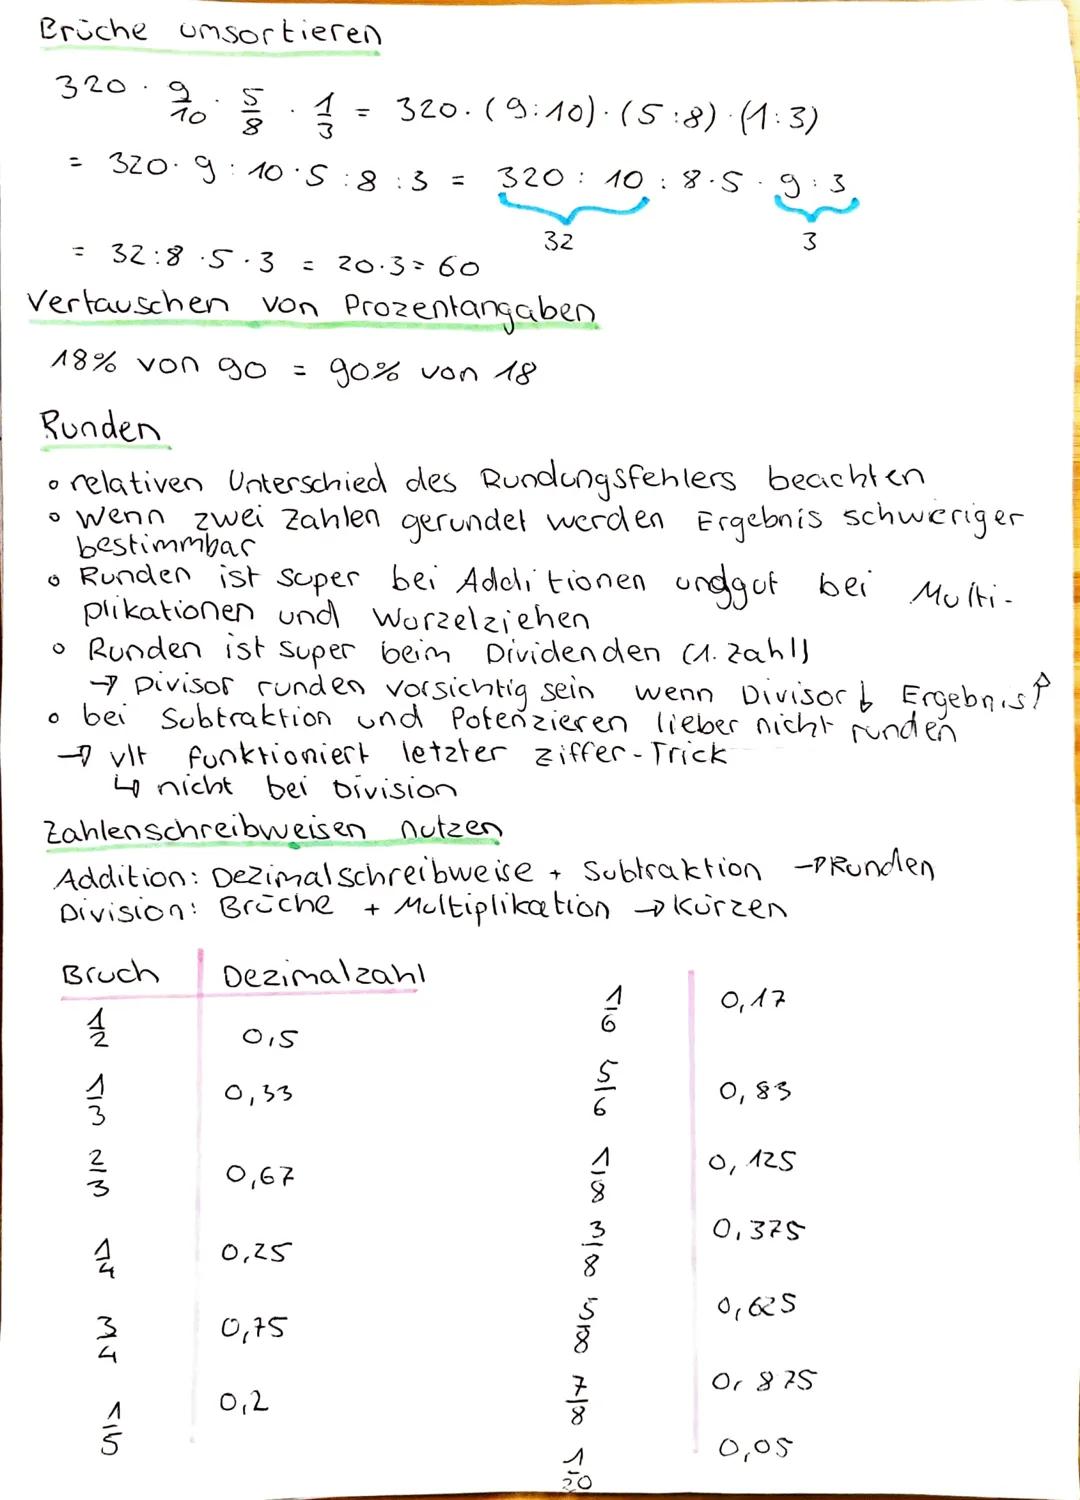 Brüche umsortieren
320 · 9/10 · 5/8 · 1/3 = 320 · (9:10) · (5:8) · (1:3)
= 320 · 9 : 10 · 5 : 8 : 3 = 320 : 10 : 8 · 5 · 9 : 3
32 3
= 32:8 · 5 · 3 = 20 · 3 = 60
Vertauschen von Prozentangaben
18% von 90 = 90% von 18
Runden
∘ relativen Unterschied des Rundungsfehlers beachten
∘ Wenn zwei Zahlen gerundet werden Ergebnis schwieriger
bestimmbar
∘ Runden ist super bei Additionen und gut bei Multi-
plikationen und Wurzelziehen
∘ Runden ist super beim Dividenden (1. Zahl)
→ Divisor runden vorsichtig sein wenn Divisor ↓ Ergebnis ↑
∘ bei Subtraktion und Potenzieren lieber nicht runden
→ vlt funktioniert letzter Ziffer-Trick
↳ nicht bei Division
Zahlenschreibweisen nutzen
Addition: Dezimalschreibweise + Subtraktion → Runden
Division: Brüche + Multiplikation → Kürzen
Bruch Dezimalzahl
1/2 0,5
1/3 0,33
2/3 0,67
1/4 0,25
3/4 0,75
1/5 0,2
1/6 0,17
5/6 0,83
1/8 0,125
3/8 0,375
5/8 0,625
7/8 0,875
1/20 0,05